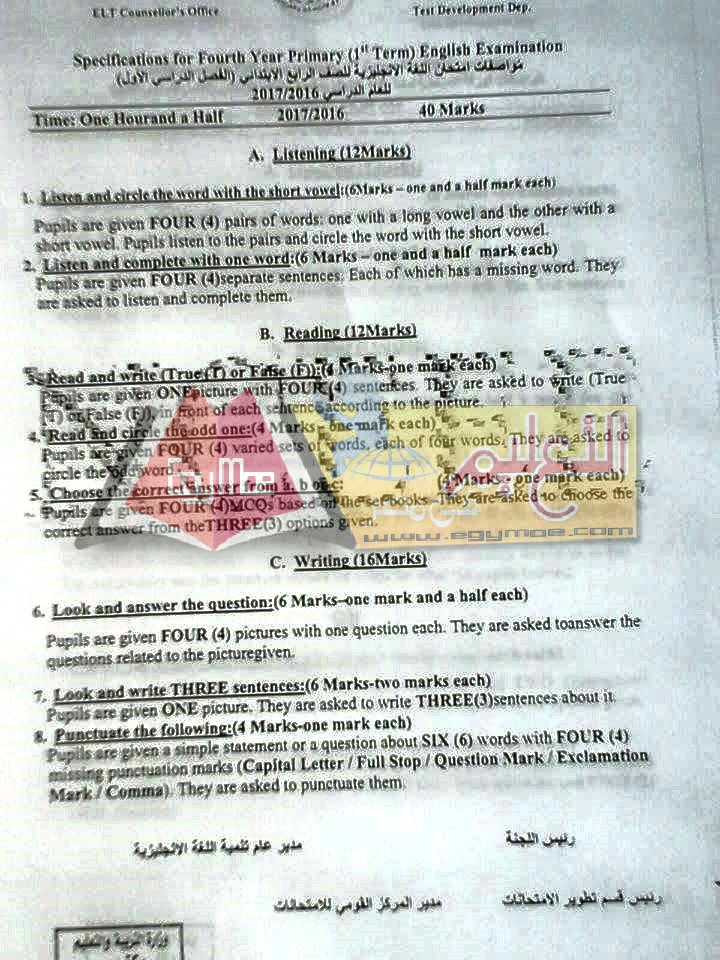 ELT Counsellor's Office
Test Development Dep.
Specifications for Fourth Year Primary (1st Term) English Examination
مواصفات امتحان اللغة الإنجليزية للصف الرابع الابتدائي (الفصل الدراسي الأول)
للعام الدراسي 2017/2016
Time: One Hourand a Half 2017/2016 40 Marks
A. Listening (12Marks)
1. Listen and circle the word with the short vowel:(6Marks – one and a half mark each)
Pupils are given FOUR (4) pairs of words: one with a long vowel and the other with a
short vowel. Pupils listen to the pairs and circle the word with the short vowel.
2. Listen and complete with one word:(6 Marks – one and a half mark each)
Pupils are given FOUR (4)separate sentences. Each of which has a missing word. They
are asked to listen and complete them.
B. Reading (12Marks)
3. Read and write (True (T) or False (F)):(4 Marks-one mark each)
Pupils are given ONE picture with FOUR (4) sentences. They are asked to write (True
(T) or False (F)) in front of each sentence according to the picture.
4. Read and circle the odd one:(4 Marks - one mark each)
Pupils are given FOUR (4) varied sets of words, each of four words. They are asked to
circle the odd word
5. Choose the correct answer from a, b or c: (4 Marks - one mark each)
Pupils are given FOUR (4)MCQs based on the set books. They are asked to choose the
correct answer from theTHREE(3) options given.
التعليم
Egy Moe
www.egymoe.com
C. Writing (16Marks)
6. Look and answer the question:(6 Marks–one mark and a half each)
Pupils are given FOUR (4) pictures with one question each. They are asked toanswer the
questions related to the picturegiven.
7. Look and write THREE sentences:(6 Marks-two marks each)
Pupils are given ONE picture. They are asked to write THREE(3)sentences about it.
8. Punctuate the following:(4 Marks-one mark each)
Pupils are given a simple statement or a question about SIX (6) words with FOUR (4)
missing punctuation marks (Capital Letter / Full Stop / Question Mark / Exclamation
Mark / Comma). They are asked to punctuate them.
رئيس اللجنة
مدير عام تنمية اللغة الانجليزية
رئيس قسم تطوير الامتحانات
مدير المركز القومي للامتحانات
وزارة التربية والتعليم